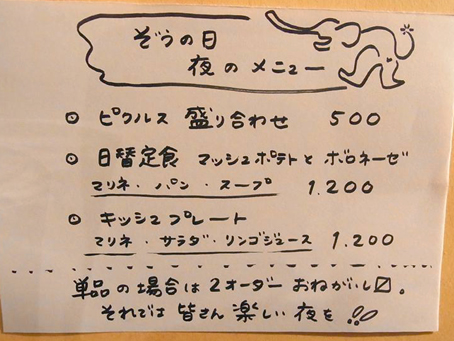 ぞうの日
夜のメニュー
◎ ピクルス 盛り合わせ 500
◎ 日替定食 マッシュポテトと ボロネーゼ
マリネ・パン・スープ 1.200
◎ キッシュプレート
マリネ・サラダ・リンゴジュース 1.200
単品の場合は2オーダーおねがいし〼。
それでは 皆さん 楽しい 夜を!!